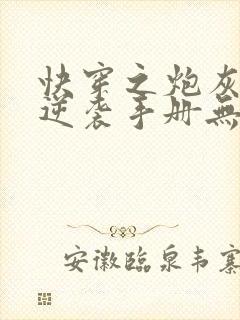 快穿之炮灰
逆袭手册無
安徽臨泉韦寨